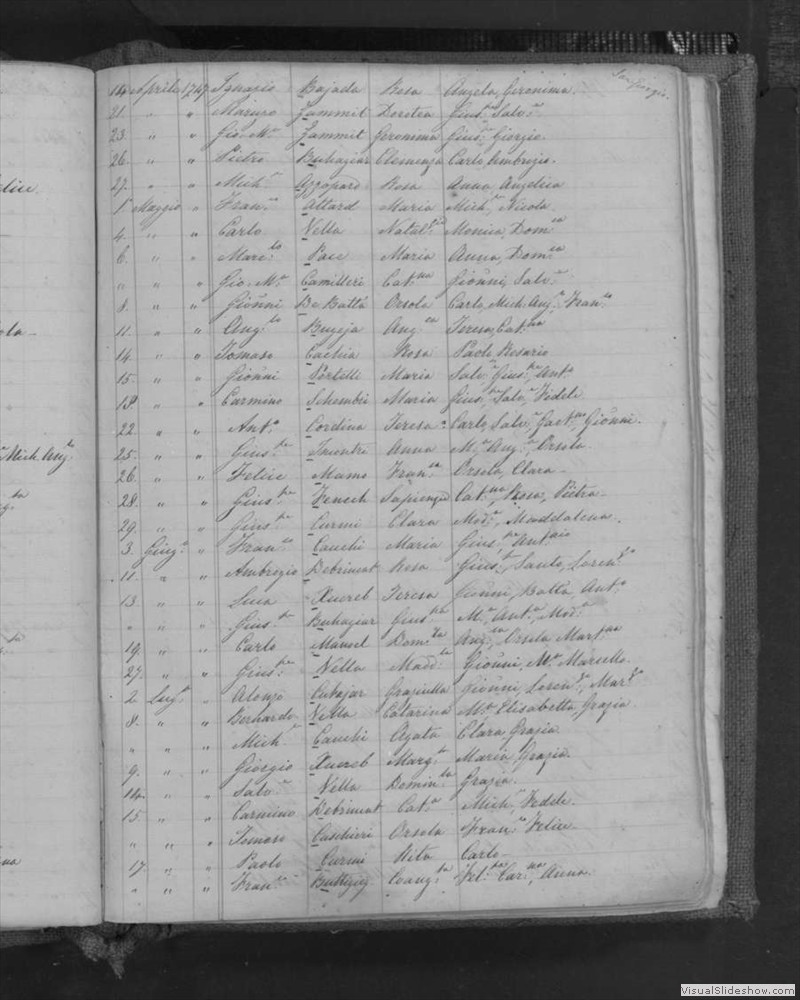 14 Aprile 1747 Ignazio Bajada Rosa Angela, Geronima.
21. " " Zammit Dorotea Gius.e Salv.e
23. " " Gio. M.a Zammit Geronima Gius.e Giorgio.
26. " " Pietro Buhagiar Clemenza Carlo Ambrogio.
27. " " Mich.e Azzopard Rosa Anna Angelica
1 Maggio " Fran.co Attard Maria Mich.e Nicola
4. " " Carlo Vella Monica, Dom.ca
6. " " Pace Maria Anna, Dom.ca
" " " Gio. M.a Camilleri Cat.na Gio:nni, Salv.e
8. " " Gio:nni De Batta Orsola Carlo, Mich. Ang.o, Fran.co
11. " " Ang.lo Bugeja Ang.ca Teresa, Cat.na
14. " " Tomaso Cachia Rosa Paolo Rosario
15. " " Gio:nni Portelli Maria Salv.e Gius.e Ant.o
18. " " Carmino Schembri Maria Gius.e Salv.e Fedele
22 " " Ant.o Cordina Teresa Carlo, Salv.e Gaet.no Gio:nni.
25. " " Gius.e Anna M.a Ang.a Orsola
26. " " Felice Mamo Fran.ca Orsola, Clara
28. " " Gius.e Fenech Sapienza Cat.na Rosa, Pietra
29. " " Gius.e Curmi Clara Maddalena.
3. Giug.o " Fran.co Cauchi Maria Gius.e Ant.nio
11. " " Ambrogio Debrincat Rosa Gius.e Santo, Loren.zo
13. " " Luca Xuereb Teresa Gio:nni, Batta, Ant.o
" " " Gius.e Buhagiar Gius.na M.a Ant.a Mad.a
19. " " Carlo Mausel Dom.ca Ang.ca Orsola Mart.na
27. " " Gius.e Vella Madd.a Gio:nni, M.a Marcello
2 Lug.o " Alonzo Cutajar Graziulla Gio:nni, Loren.zo, Mar.zo
8. " " Berhardo Vella Catarina M.a Elisabetta, Grazia
" " " Mich.e Cauchi Agata Clara, Grazia.
9. " " Giorgio Xuereb Marg.ta Maria, Grazia.
14. " " Salv.e Vella Domin.ca Grazia.
15 " " Carmino Debrincat Cat.a Mich.e Fedele.
" " " Tomaso Caschieri Orsola Fran.co Felice
17. " " Paolo Curmi Rita Carlo
" " " Fran.co Buttigieg Anna.